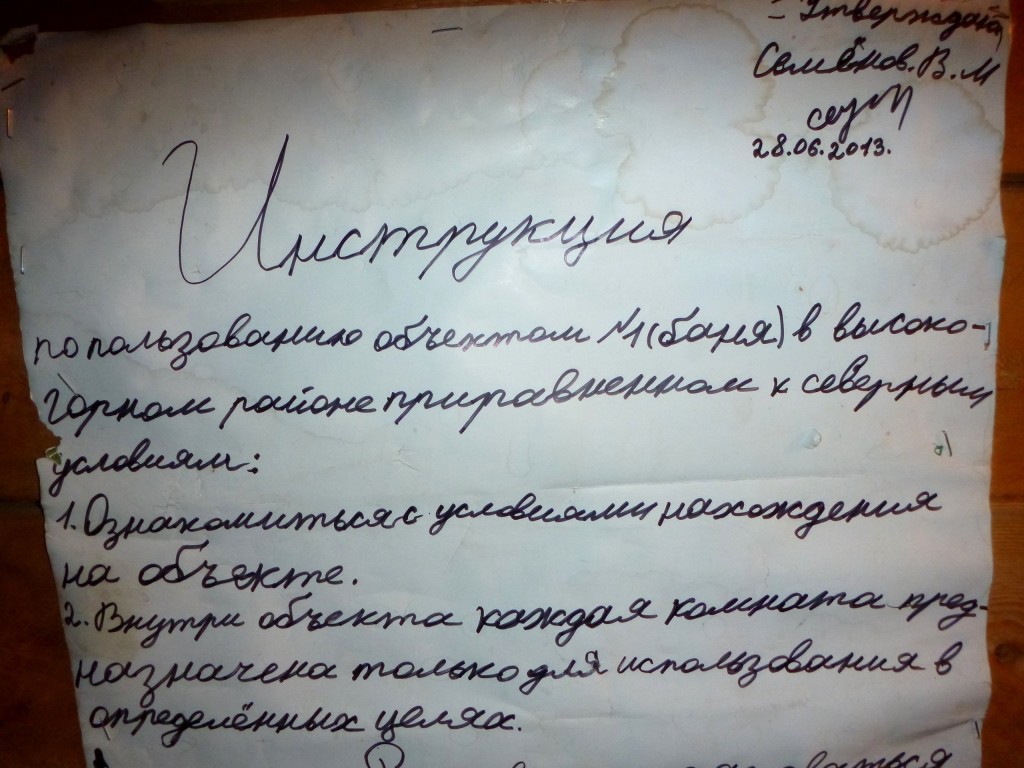 - Утверждаю
Семёнов. В. М
28.06.2013.
Инструкция
по пользованию объектом №1 (баня) в высоко-
горном районе приравненном к северным
условиям:
1. Ознакомиться с условиями нахождения
на объекте.
2. Внутри объекта каждая комната пред-
назначена только для использования в
определённых целях.